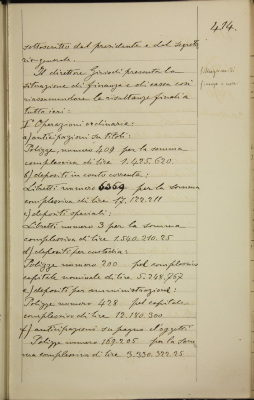 414.
sottoscritto dal presidente e dal segreta
rio generale.
Il direttore presenta la
situazione di finanza e di cassa così
riassumendone le risultanze finali a
tutto ieri:
I° Operazioni ordinarie:
a) anticipazioni su titoli:
Polizze, numero 409 per la somma
complessiva di lire 1.495.620.
b) depositi in conto corrente:
Libretti numero 6369 per la somma
complessiva di lire 17.122.211
c) depositi speciali:
Libretti numero 3 per la somma
complessiva di lire 1.540.210.25
d) depositi per custodia:
Polizze numero 200 pel complessivo
capitale nominale di lire 5.248.767
e) depositi per amministrazione:
Polizze numero 428 pel capitale
complessivo di lire 12.180.300
f) anticipazioni su pegno d'oggetti:
Polizze numero 169.205 per la som
ma complessiva di lire 3.330.322.25